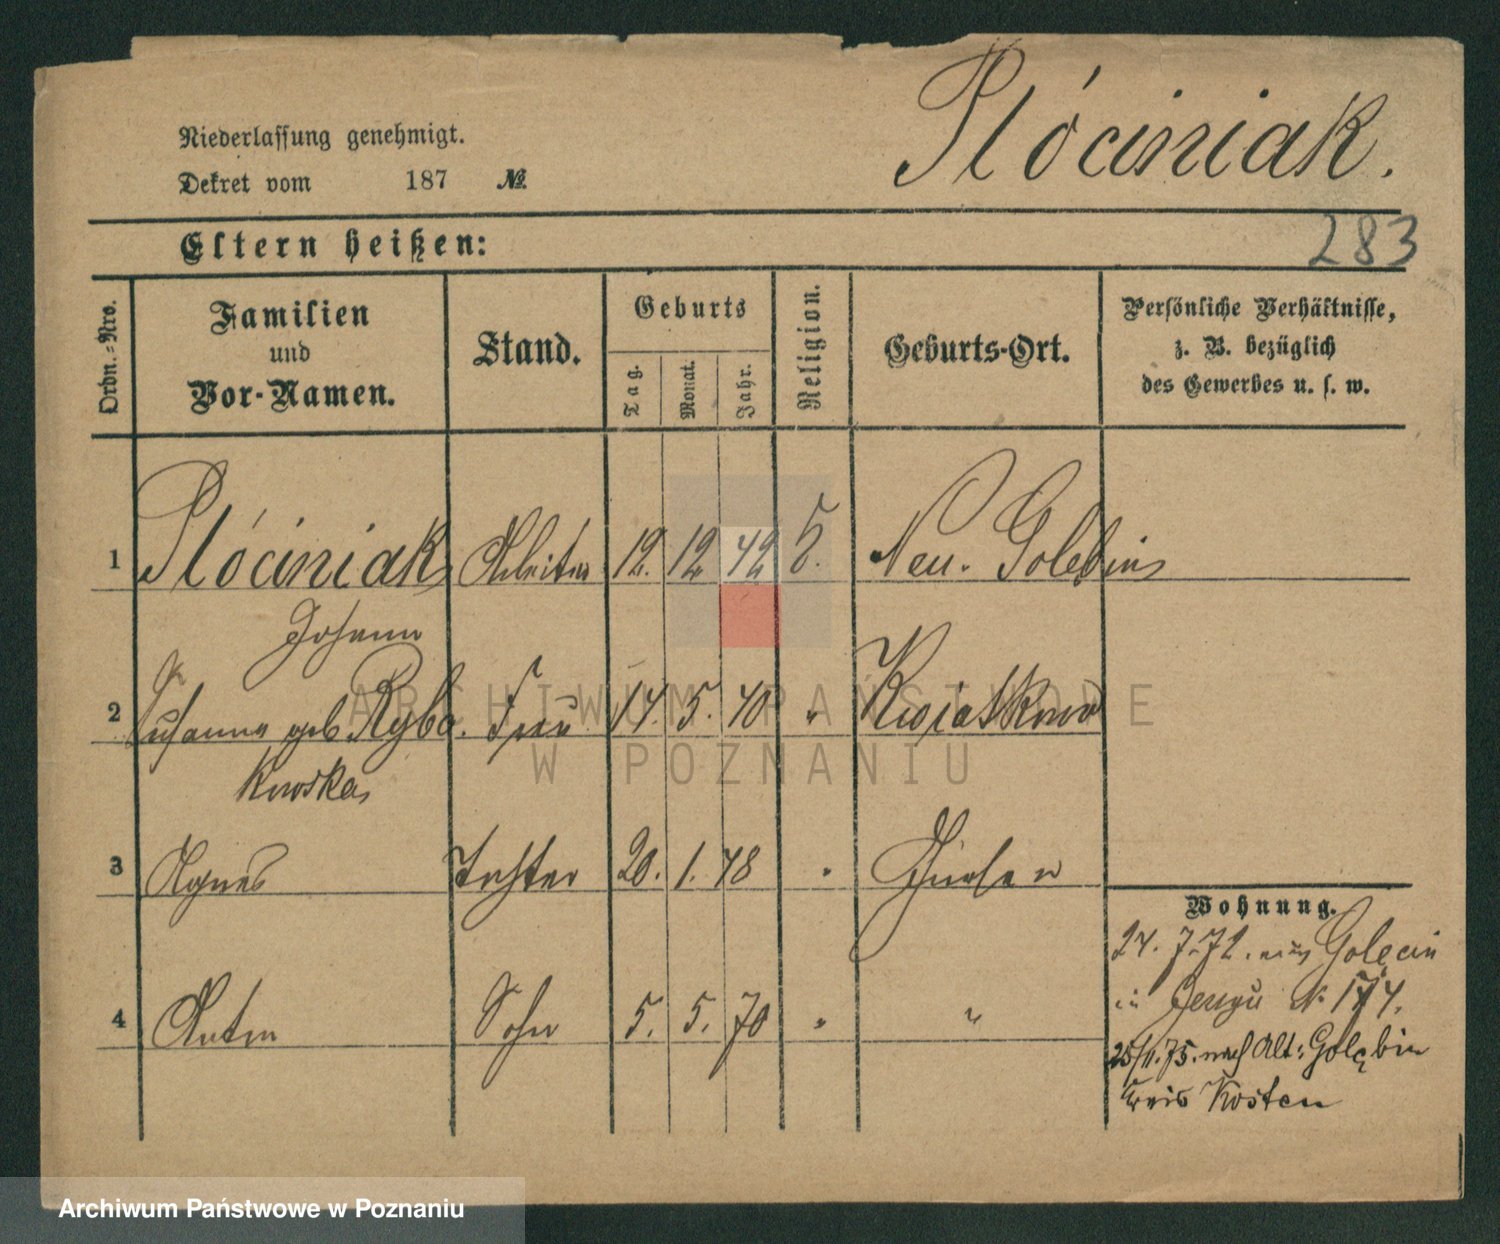 Płóciniak.
Niederlassung genehmigt.
Dekret vom 187 №
283
Eltern heißen:
Ordn.-Nro.
Familien
und
Vor-Namen.
Stand.
Geburts
Tag.
Monat.
Jahr.
Religion.
Geburts-Ort.
Persönliche Verhältnisse,
z. B. bezüglich
des Gewerbes u. s. w.
1 Płóciniak Arbeiter 12. 12 42 Neu-Golebin
Johann
2 Susanna geb Rybo. Frau 14. 5. 40 " Kwiatkowo
kowska
3 Agnes Tochter 20. 1. "
4 Anton Sohn 5. 5. 70 " "
Wohnung.
24. 7. 72. aus Golęcin
in Jerzyce № 174.
25/11. 75. nach Alt: Golębin
Kreis Kosten
ARCHIWUM PAŃSTWOWE
W POZNANIU
Archiwum Państwowe w Poznaniu